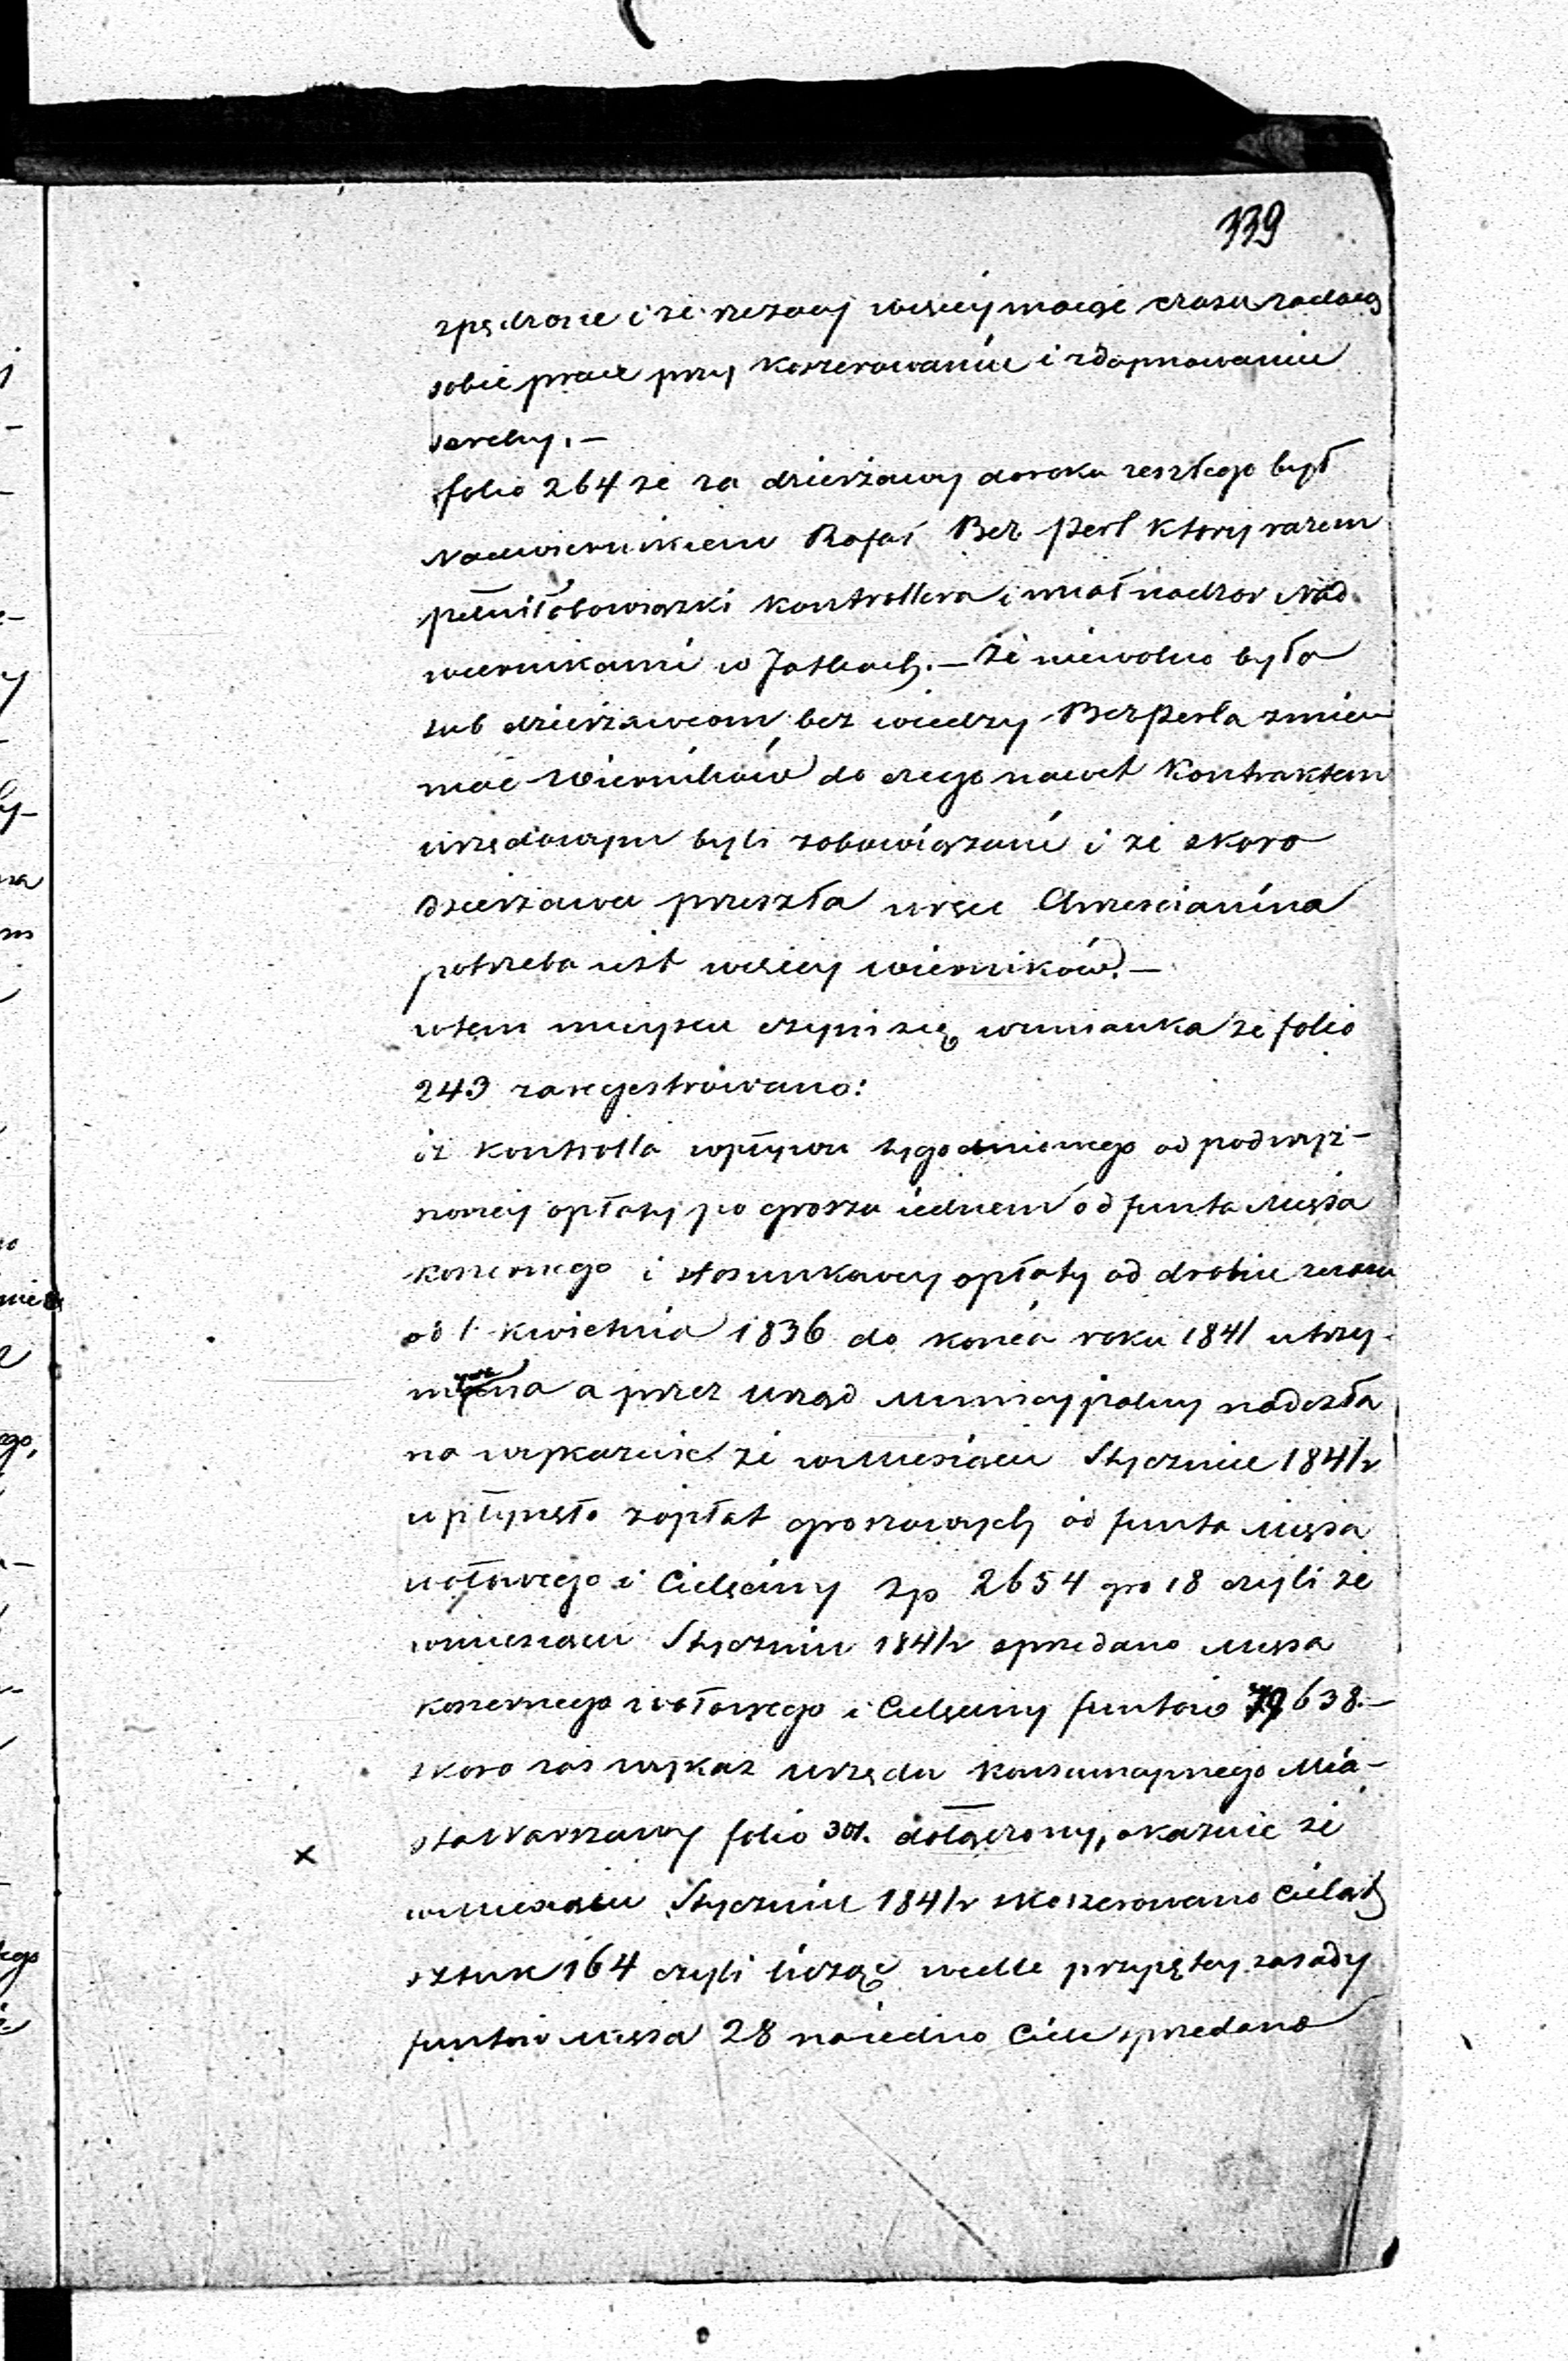 339
spędzone i że rzezacy więcej mając czasu zadają
sobie prace przy koszerowaniu i zdaymowaniu
serchy. —
folio 264 że za dzierżawy do roku zeszłego był
Nadwiernikiem Rafał Ber Perl który razem
pełnił obowiązki kontrollera i miał nadzor nad
wiernikami w Jatkach. — Że niewolno było
sub dzierżawcom bez wiedzy Berperla zmie
niać wierników do czego nawet kontraktem
urzędowym byli zobowiązani i że skoro
dzierżawa przeszła w ręce Chrześcianina
potrzeba jest więcey wierników. —
w tem mieyscu czyni się wmianka że folio
243 zaregestrowano:
iż kontrolla wpływu tygodniowego od podwyż-
szoney opłaty po groszu iednem od funta Mięsa
koszernego i stosunkowey opłaty od drobiu
od 1 kwietnia 1836 do końca roku 1841 utrzy-
mywana a przez Urząd Municypalny nadeszła
na wykazuie że w Miesiącu Styczniu 1841 r
wpłynęło z opłat groszowych od funta Mięsa
wołowego i Cielęciny zp 2654 gro 18 czyli że
w miesiącu Styczniu 1841 r sprzedano Mięsa
koszernego wołowego i Cielęciny funtow 79638. —
skoro zaś wykaz Urzędu Konsumpnego Mia-
sta Warszawy folio 301. dołączony, okazuie że
x
w miesiącu Styczniu 1841 r skoszerowano Cieląt
sztuk 164 czyli licząc wedle przyjętey zasady
funtow Mięsa 28 na iedno Ciele sprzedano